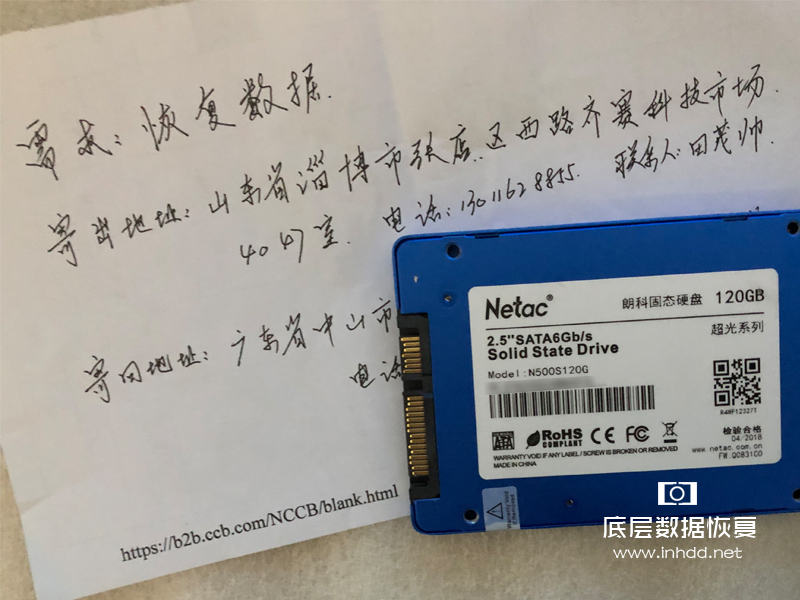 需求：恢复数据.
寄出地址：山东省淄博市张店区西路齐赛科技市场.
4047室. 电话：13011628855. 联系人：田茂帅.
寄回地址：广东省中山市
电话
https://b2b.ccb.com/NCCB/blank.html
Netac®
朗科固态硬盘 120GB
超光系列
2.5"SATA6Gb/s
Solid State Drive
Model:N500S120G
R4WF12327T
SATA RoHS COMPLIANT CE FC
检验合格
04/2018
www.netac.com.cn
FW.Q0831C0
WARRANTY VOID IF ANY LABEL / SCREW IS BROKEN OR REMOVED
MADE IN CHINA
底层数据恢复
www.inhdd.net